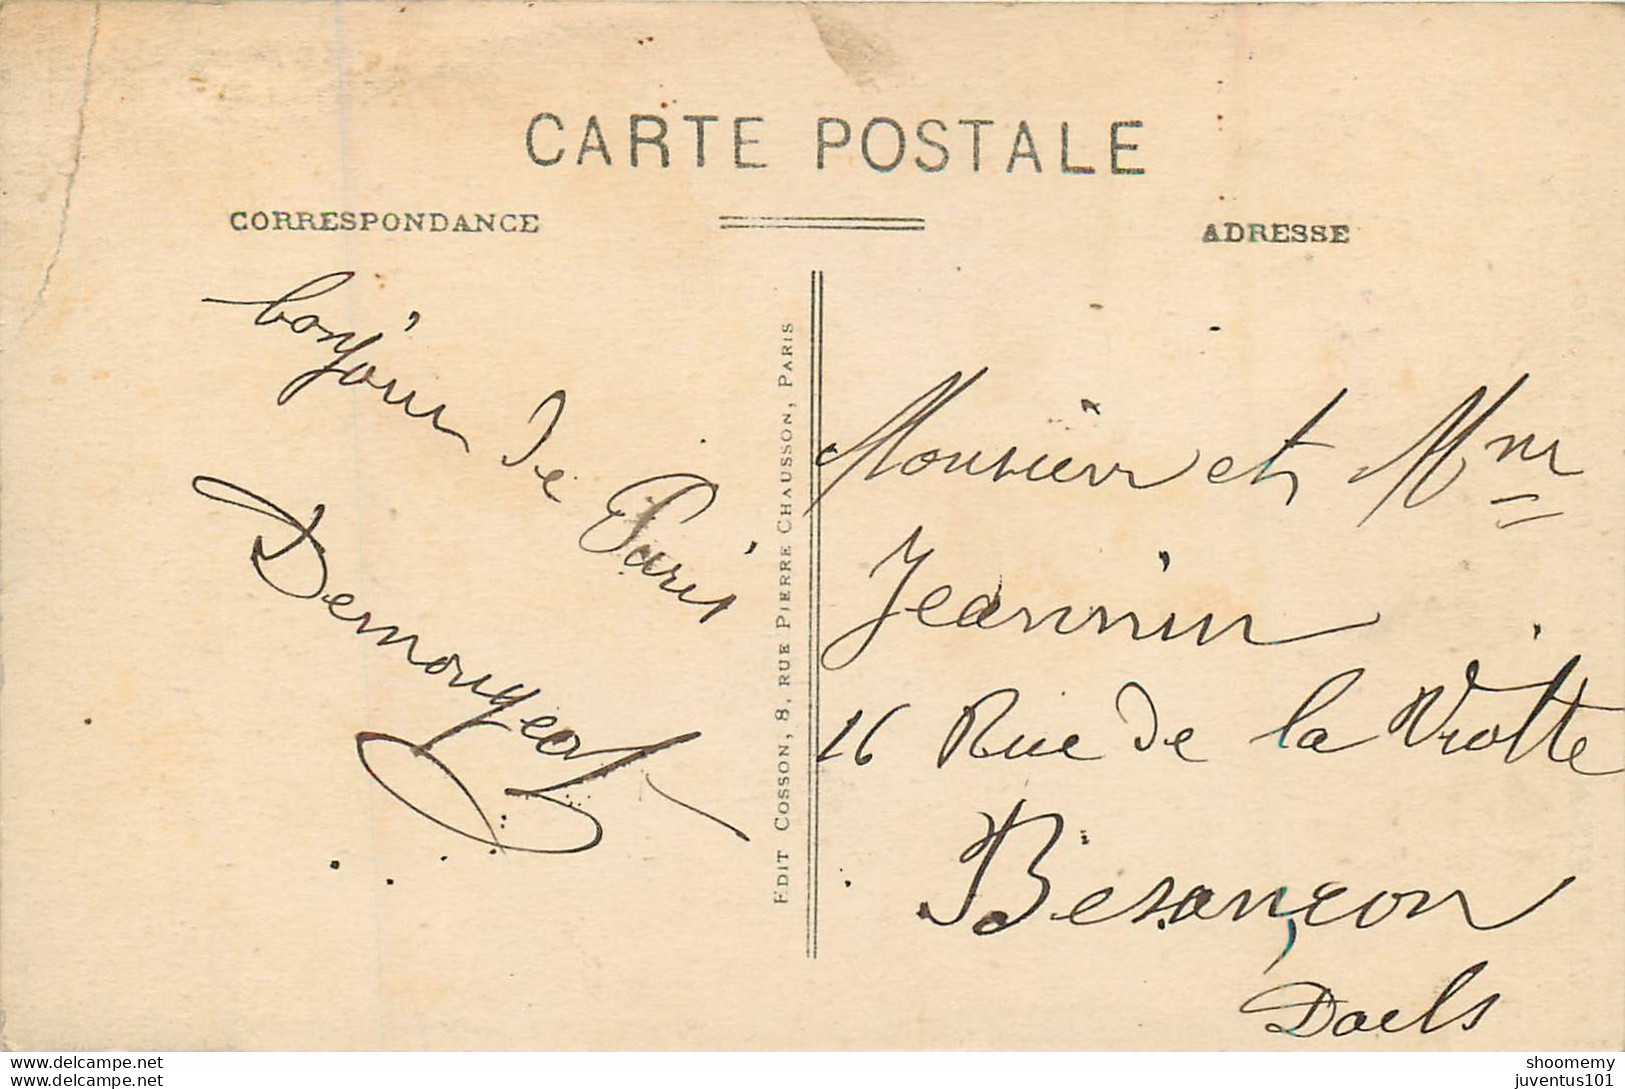 CARTE POSTALE
CORRESPONDANCE
ADRESSE
bonjour de Paris
Demongeot
EDIT COSSON, 8, RUE PIERRE CHAUSSON, PARIS
Monsieur et Mme
Jeannin
16 Rue de la Viotte
Besançon
Doubs
www.delcampe.net
shoomemy
juventus101